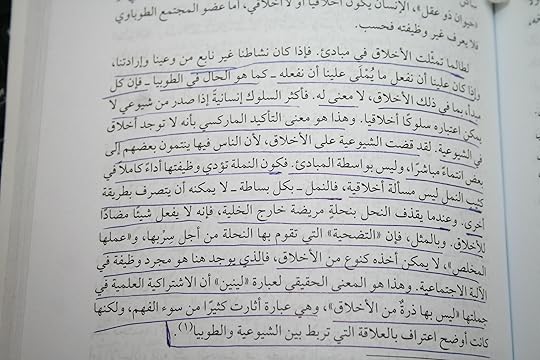 «حيوان ذو عقل»، الإنسان يكون أخلاقيا أو لا أخلاقي، أما عضو المجتمع الطوباوي
فلا يعرف غير وظيفته فحسب.
لطالما تمثلت الأخلاق في مبادئ. فإذا كان نشاطنا غير نابع من وعينا وإرادتنا،
وإذا كان علينا أن نفعل ما يُمْلَى علينا أن نفعله ـ كما هو الحال في الطوبيا ـ فإن كل
مبدأ، بما في ذلك الأخلاق، لا معنى له. فأكثر السلوك إنسانية إذا صدر من شيوعي لا
يمكن اعتباره سلوكًا أخلاقيا. وهذا هو معنى التأكيد الماركسي بأنه لا توجد أخلاق
في الشيوعية. لقد قضت الشيوعية على الأخلاق، لأن الناس فيها ينتمون بعضهم إلى
بعض انتماءً مباشرًا، وليس بواسطة المبادئ. فكون النملة تؤدي وظيفتها أداءً كاملًا في
كثيب النمل ليس مسألة أخلاقية، فالنمل ـ بكل بساطة ـ لا يمكنه أن يتصرف بطريقة
أخرى. وعندما يقذف النحل بنحلةٍ مريضة خارج الخلية، فإنه لا يفعل شيئًا مضادًا
للأخلاق. وبالمثل، فإن «التضحية» التي تقوم بها النحلة من أجل سِرْبها، و«عملها
المخلص»، لا يمكن أخذه كنوع من الأخلاق، فالذي يوجد هنا هو مجرد وظيفة في
الآلة الاجتماعية. وهذا هو المعنى الحقيقي لعبارة «لينين» أن الاشتراكية العلمية في
جملتها «ليس بها ذرةٌ من الأخلاق»، وهي عبارة أثارت كثيرًا من سوء الفهم، ولكنها
كانت أوضح اعتراف بالعلاقة التي تربط بين الشيوعية والطوبيا(١).